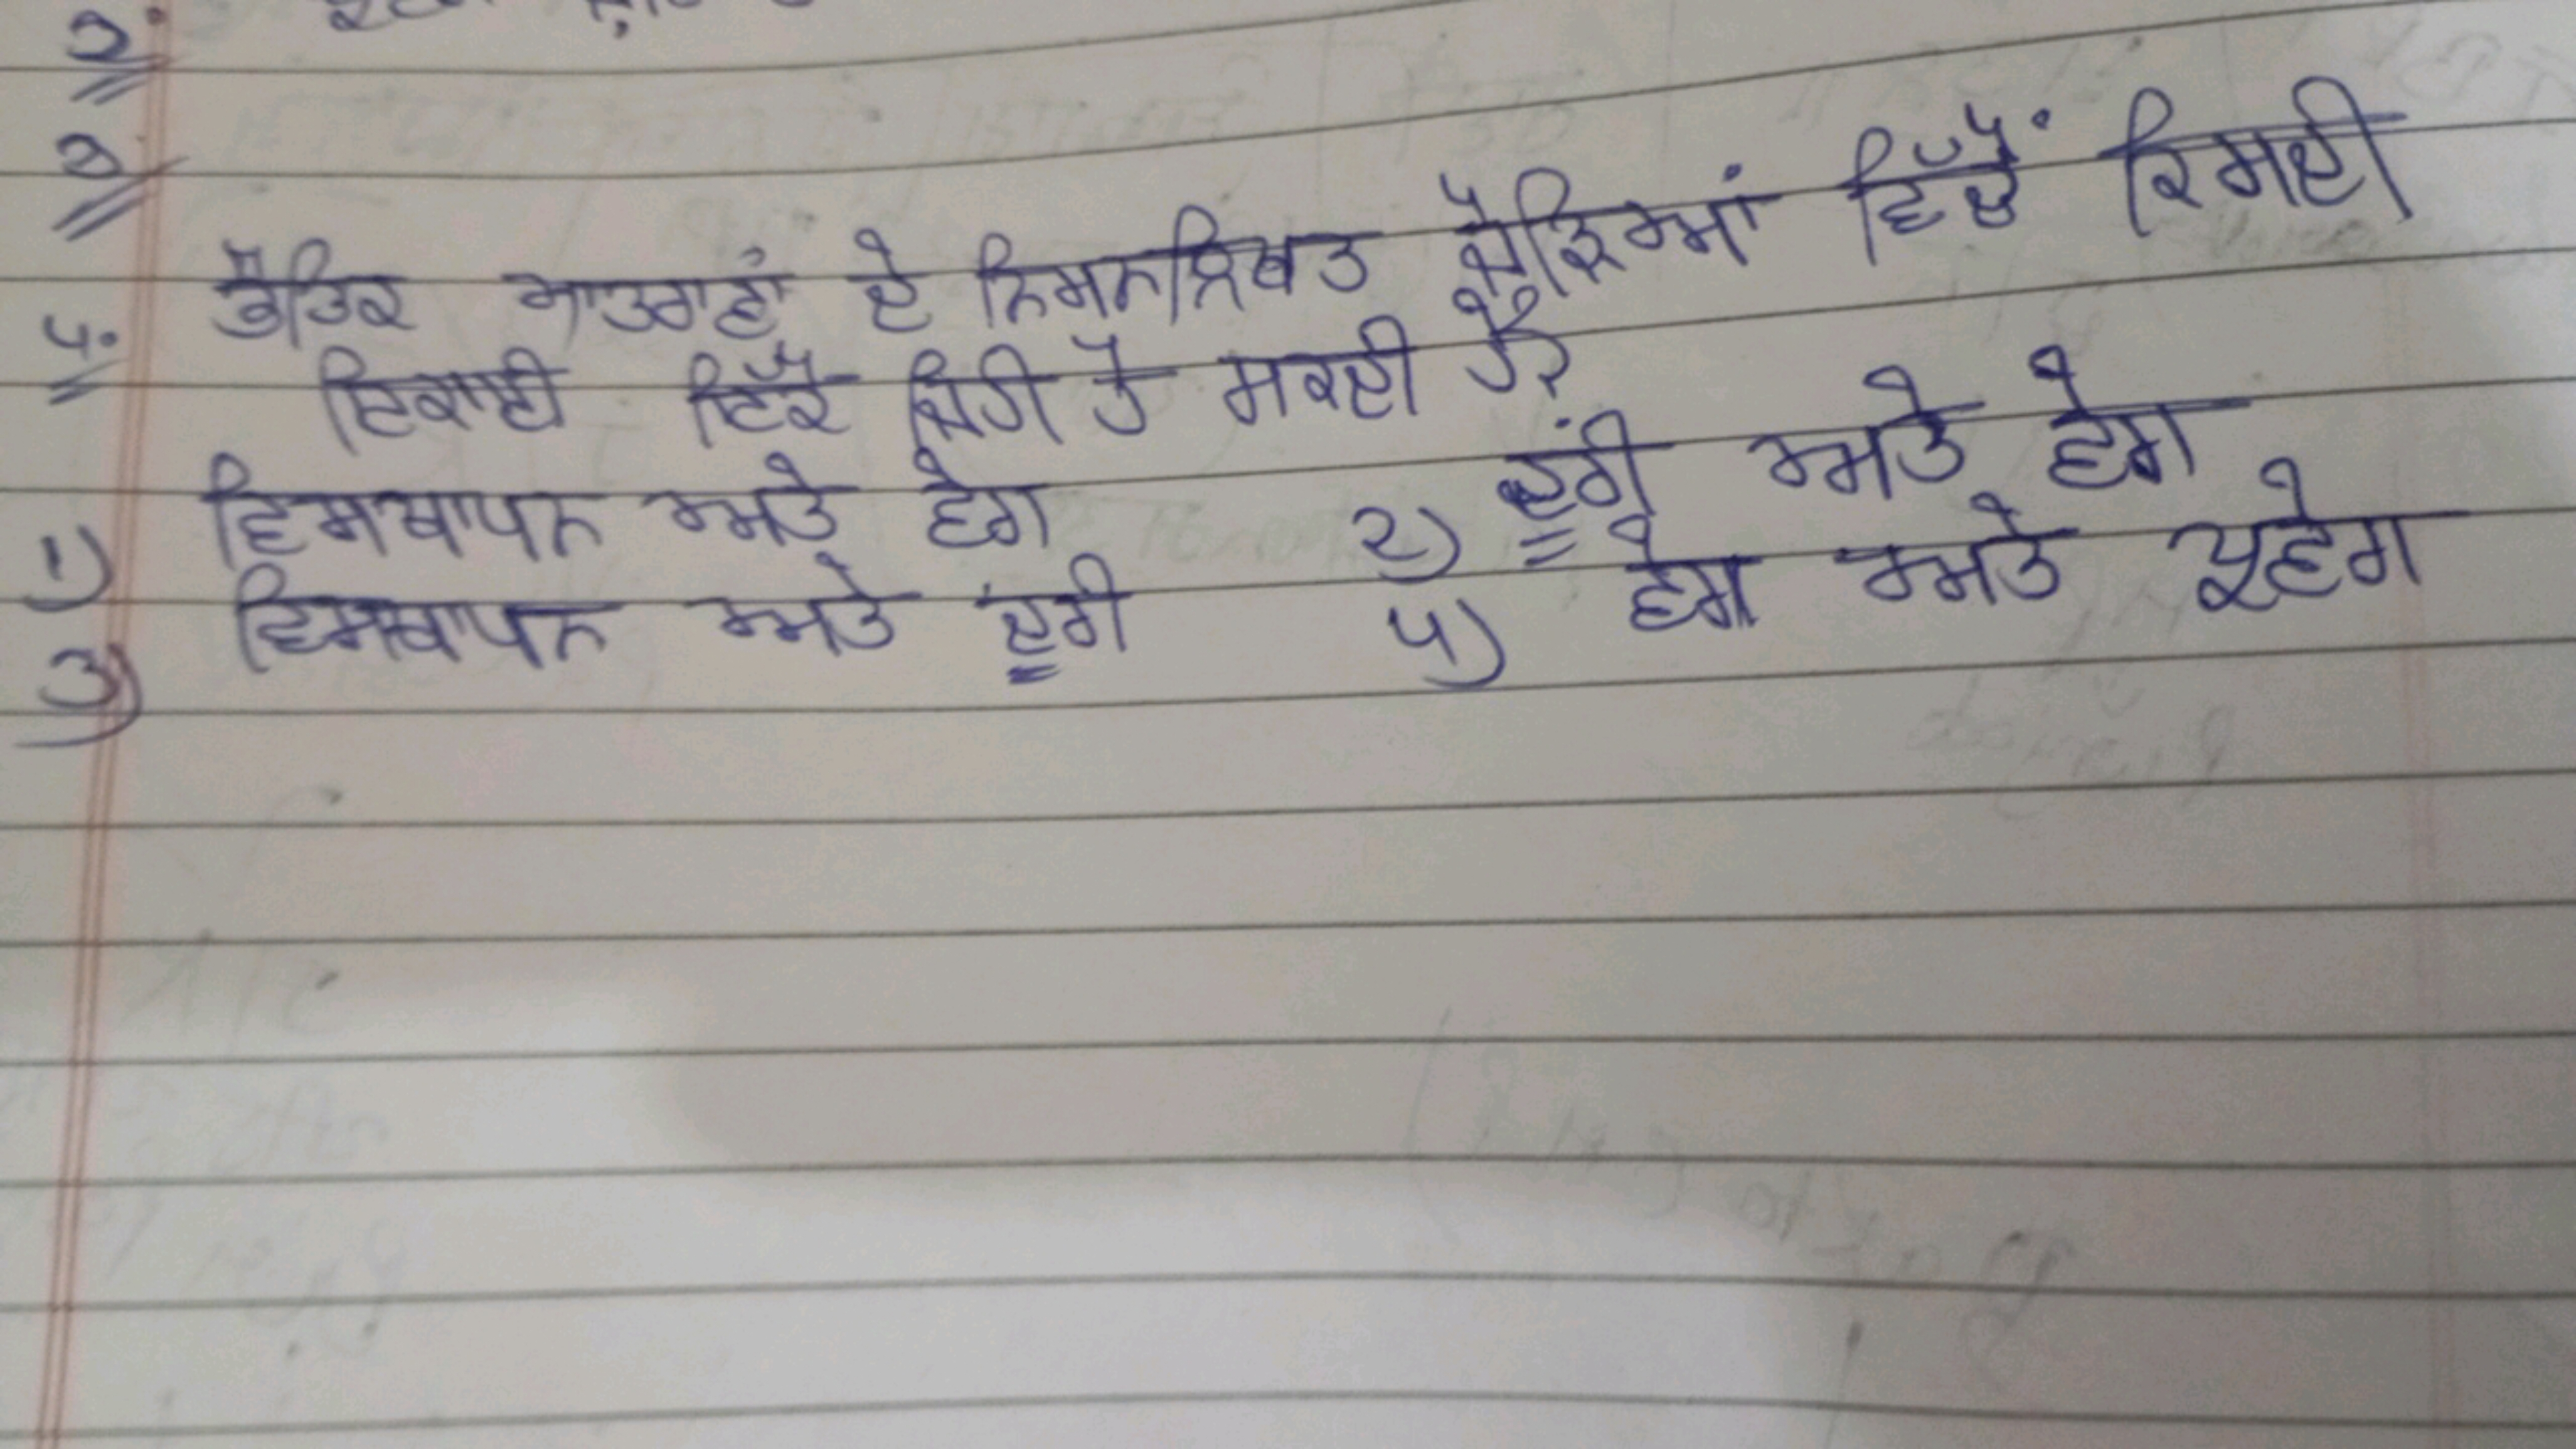 ੫. ਭੌਤਿਕ ਮਾਤਰਾਵਾਂ ਦੇ ਨਿਮਨਲਿਖਤ ਜੋੜਿਆਂ ਵਿੱਚੋਂ ਕਿਸਦੀ
ਇਕਾਈ ਇੱਕੋ ਜਿਹੀ ਹੋ ਸਕਦੀ ਹੈ?
1) ਵਿਸਥਾਪਨ ਅਤੇ ਵੇਗ 2) ਦੂਰੀ ਅਤੇ ਵੇਗ
3) ਵਿਸਥਾਪਨ ਅਤੇ ਦੂਰੀ 4) ਵੇਗ ਅਤੇ ਪ੍ਰਵੇਗ